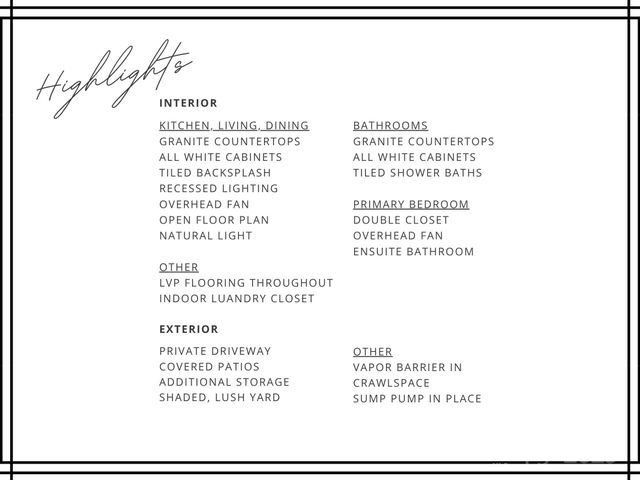 Highlights
INTERIOR
KITCHEN, LIVING, DINING
GRANITE COUNTERTOPS
ALL WHITE CABINETS
TILED BACKSPLASH
RECESSED LIGHTING
OVERHEAD FAN
OPEN FLOOR PLAN
NATURAL LIGHT
OTHER
LVP FLOORING THROUGHOUT
INDOOR LUANDRY CLOSET
BATHROOMS
GRANITE COUNTERTOPS
ALL WHITE CABINETS
TILED SHOWER BATHS
PRIMARY BEDROOM
DOUBLE CLOSET
OVERHEAD FAN
ENSUITE BATHROOM
EXTERIOR
PRIVATE DRIVEWAY
COVERED PATIOS
ADDITIONAL STORAGE
SHADED, LUSH YARD
OTHER
VAPOR BARRIER IN
CRAWLSPACE
SUMP PUMP IN PLACE